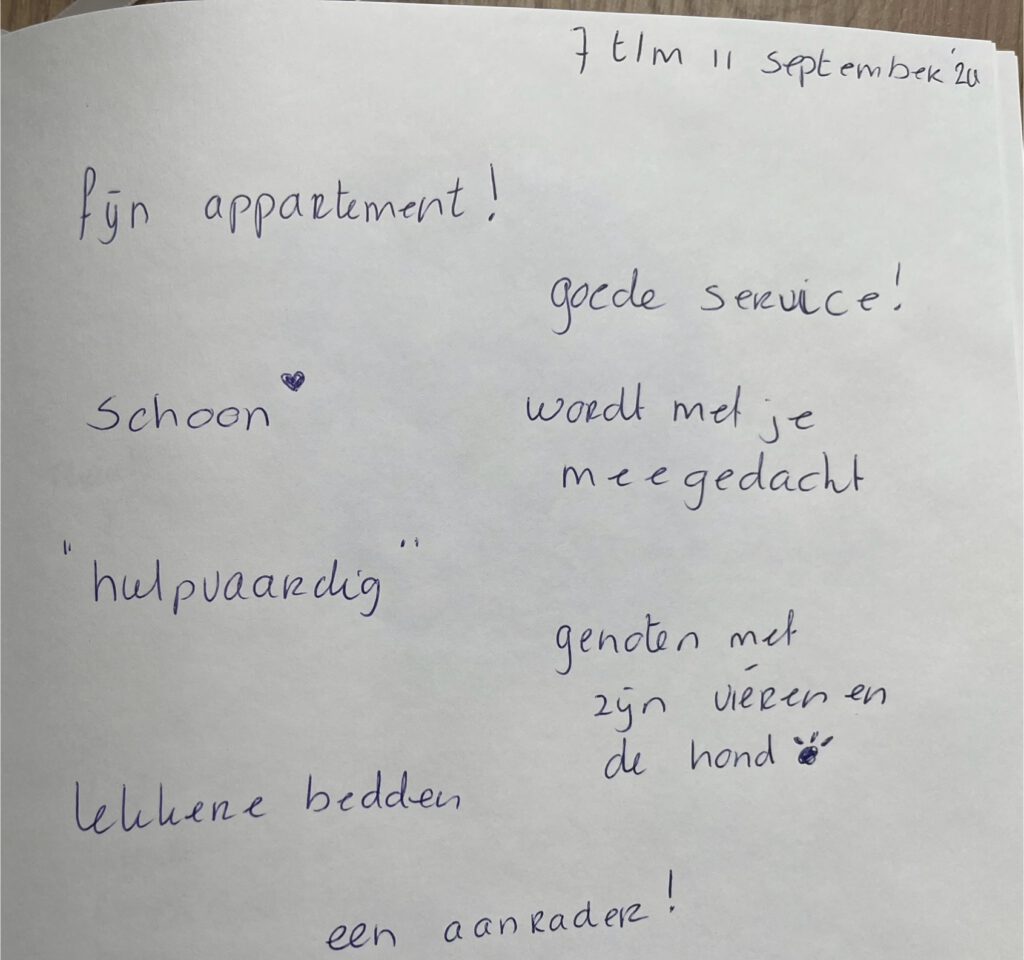 7 t/m 11 september '20
fijn appartement!
goede service!
schoon
wordt met je
meegedacht
"hulpvaardig"
genoten met
zijn viéren en
de hond
lekkere bedden
een aanrader!